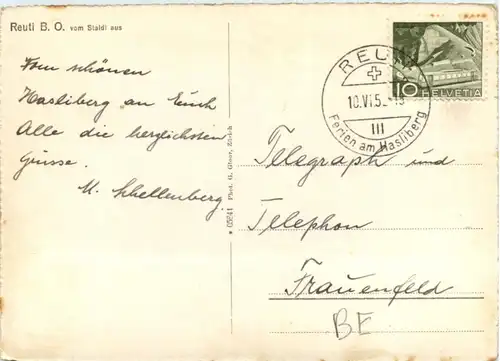 Reuti B. O. vom Staldi aus
Vom schönen
Hasliberg an Euch
Alle die herzlichsten
Grüsse.
M. Schellenberg.
05241 Phot. G. Glaser, Zürich
REUTI
10.VI.5
III
Ferien am Hasliberg
10 HELVETIA
Telegraph und
Telephon
Frauenfeld
BE